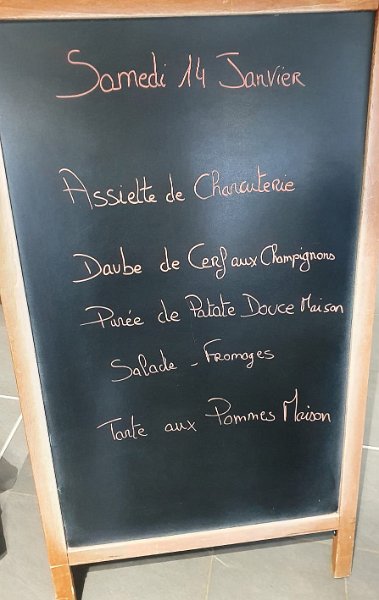 Samedi 14 Janvier
Assiette de Charcuterie
Daube de Cerf aux Champignons
Purée de Patate Douce Maison
Salade - Fromages
Tarte aux Pommes Maison